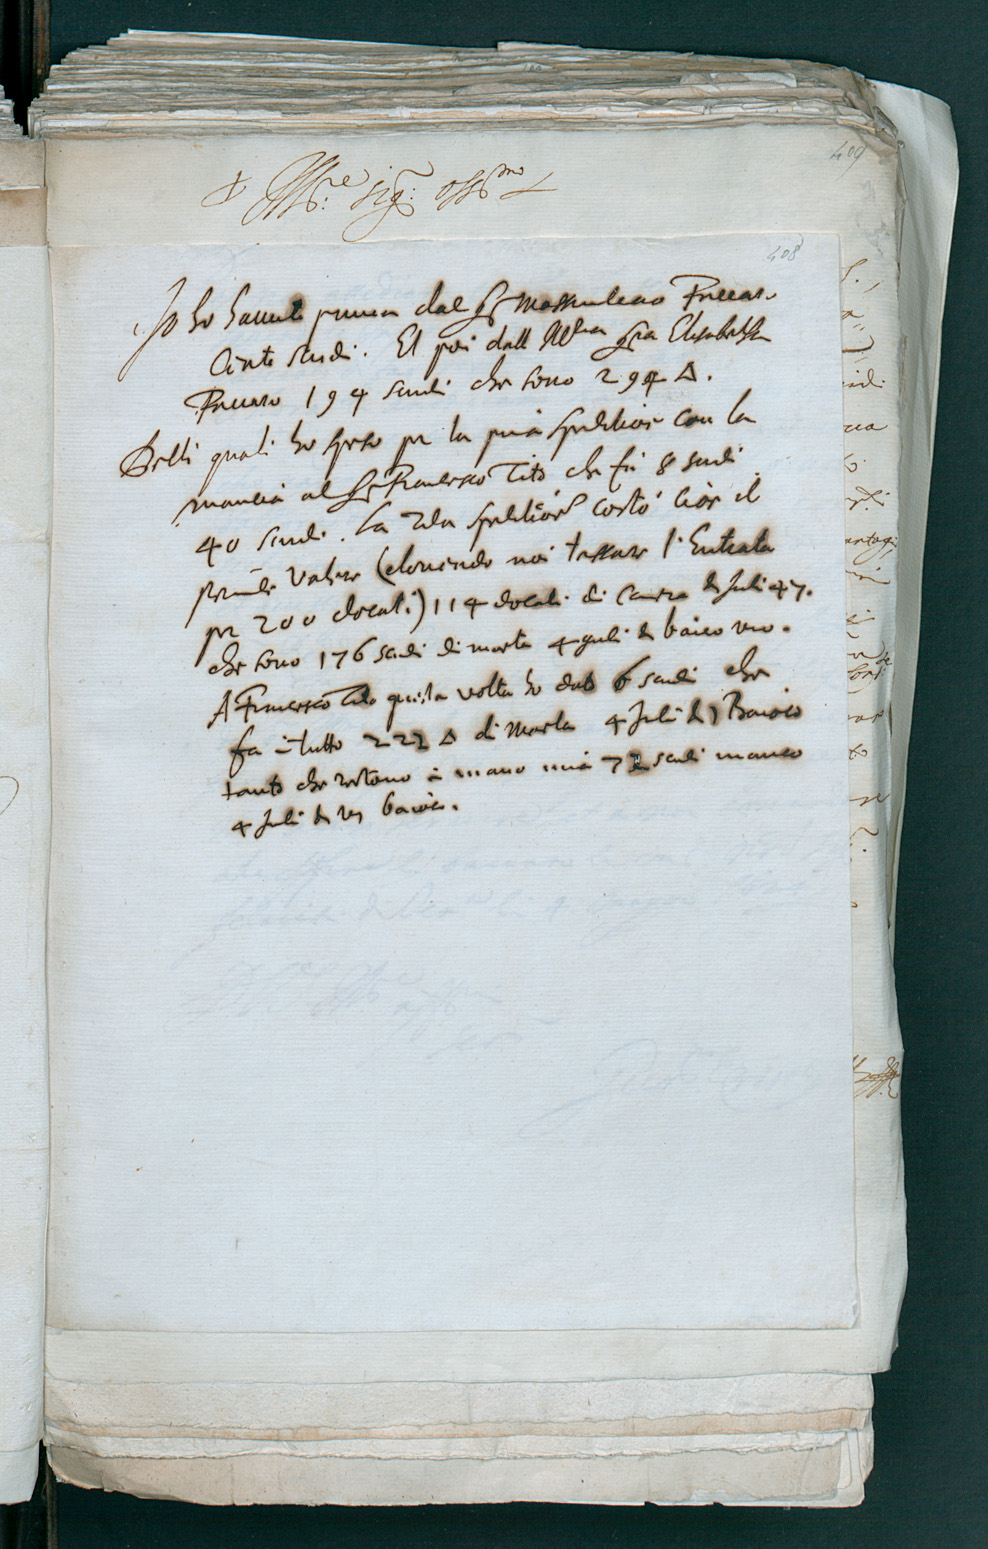 409
Ill.re sig.r oss.mo
408
Io ho hauuto prima dal S.r Massimiliano
Cento scudi. Et poi dall Ill.tra S.ra Elisabetta
194 scudi che sono 294 Δ.
Delli quali ho speso per la prima speditione con la
mancia al S.r Francesco Tito che fu 8 scudi
40 scudi. La 2da speditione costò cioè il
Valere (dovendo noi tassare l'Entrata
per 200 docati) 114 docati di Camera di Juli 47.
che sono 176 scudi di moneta 4 giuli et baioco uno.
A Francesco Tito questa volta ho dato 6 scudi che
fa in tutto 222 Δ di moneta 4 Juli et 1 Baioco
tanto che restono in mano mia 72 scudi manco
4 Juli et un baioco.